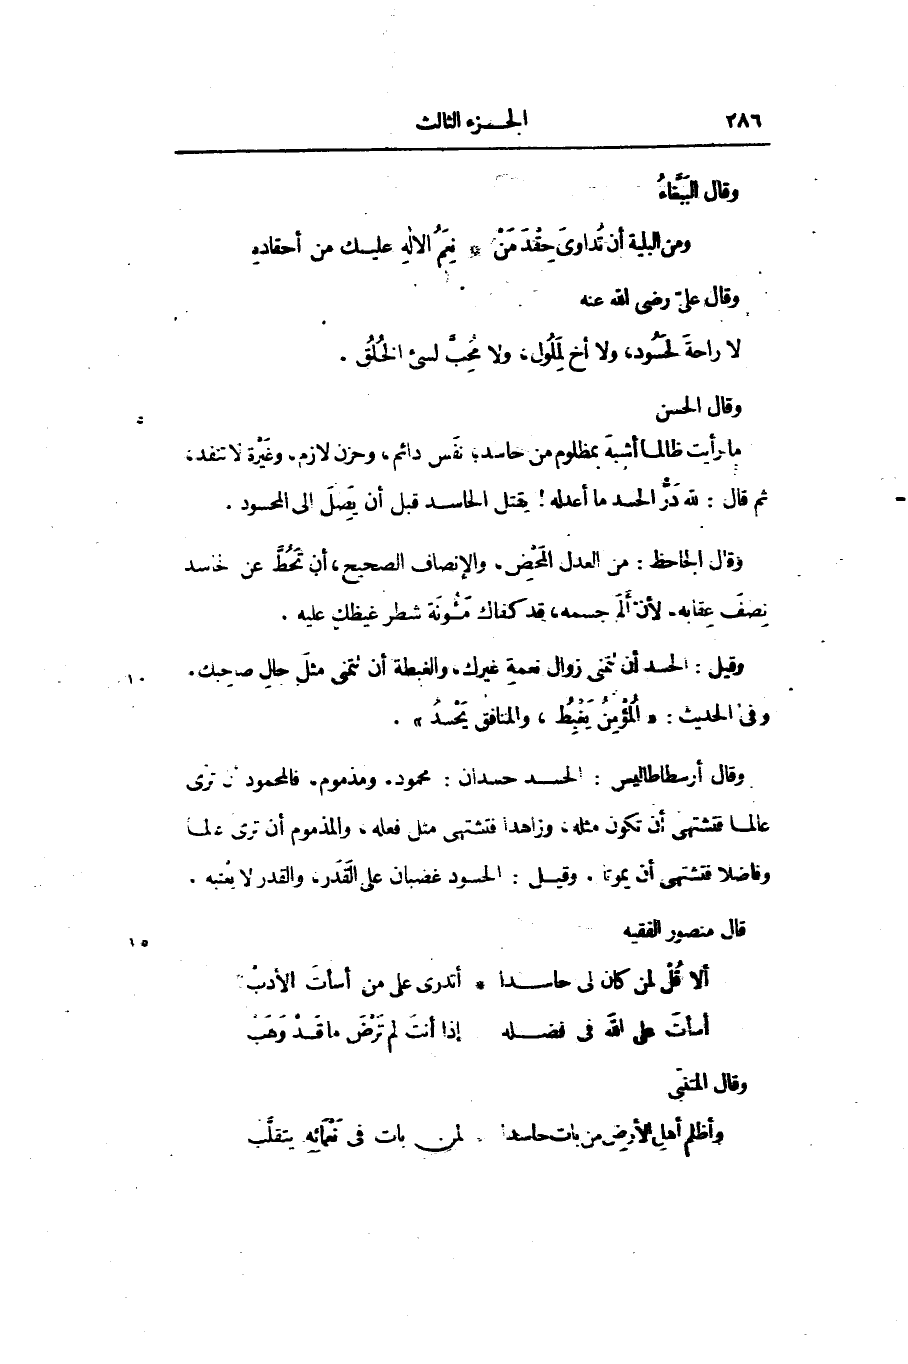 ٢٨٦ الجزء الثالث
وقال الببَّغاءُ
ومن البلية أن تُداوىَ حِقْدَ مَنْ * نِعَمُ الالٰهِ عليك من أحقادهِ
وقال علىّ رضى الله عنه
لا راحةَ لحَسُود، ولا أخ لمَلُول، ولا مُحِبَّ لسىء الخُلُق .
وقال الحسن
ما رأيت ظالما أشبهَ بمظلوم من حاسد؛ نفَس دائم، وحزن لازم. وغَيْرة لا تنفد،
ثم قال : لله دَرُّ الحسد ما أعدله! يقتل الحاسد قبل أن يَصِلَ الى المحسود .
وقال الجاحظ : من العدل المَحْضِ. والإنصاف الصحيح، أن تَحُطَّ عن حاسد
نِصفَ عِقابه. لأن أَلَمَ جسمه، قد كفاك مَئُونَة شطر غيظك عليه .
وقيل : الحسد أن تتمنى زوال نعمةِ غيرك، والغبطة أن تتمنى مثلَ حالِ صاحبك. ١٠
وفى الحديث : « المُؤْمِنُ يَغْبِطُ ، والمنافق يَحْسدُ » .
وقال أرسطاطاليس : الحسد حسدان : محمود. ومذموم. فالمحمود أن ترى
عالما فتشتهى أن تكون مثله، وزاهدا فتشتهى مثل فعله، والمذموم أن ترى عالما
وفاضلا فتشتهى أن يموتا . وقيل : الحسود غضبان على القَدَر، والقدر لا يعْتبه .
قال منصور الفقيه ١٥
ألا قُلْ لمن كان لى حاسدا * أتدرى على من أسأتَ الأدبْ
أسأتَ على اللهَ فى فضله إذا أنتَ لم تَرْضَ ما قَدْ وَهَبْ
وقال المتنبّى
وأظلم أهلِ الأرض من بات حاسدا لمن بات فى نَعْمَائِهِ يتقلَّب